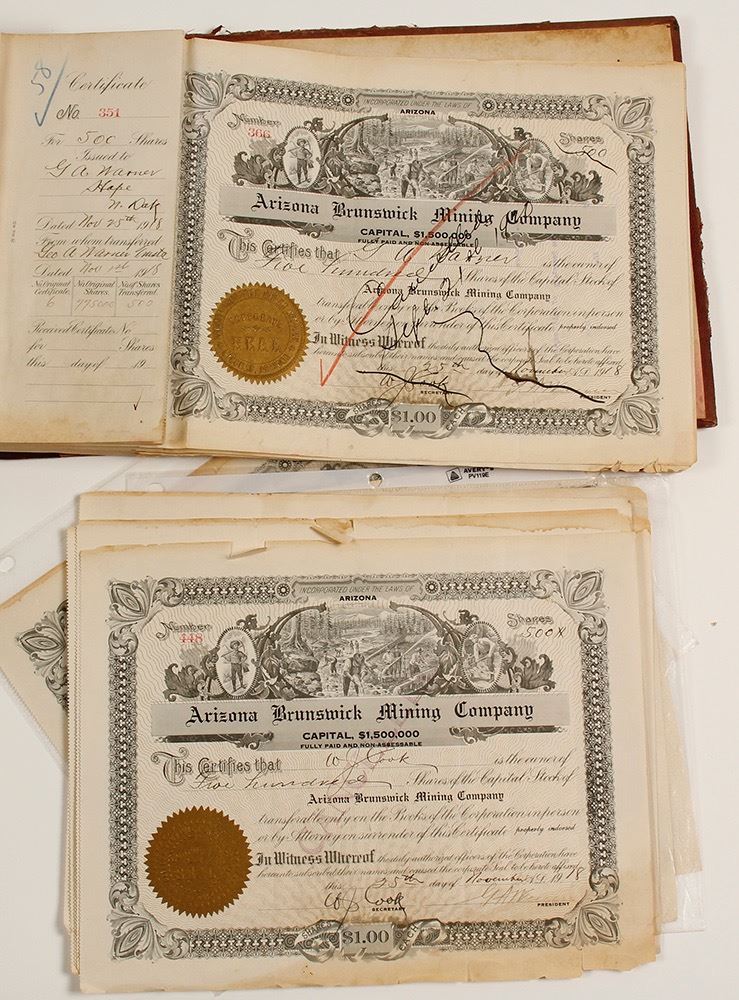 58
Certificate
No. 351
For 500 Shares
Issued to
G A Warner
Hope
N. Dak
Dated Nov 25th 1918
From whom transferred
Geo A Warner
Dated Nov 1918
No Original Certificate. No Original Shares. No of Shares Transferred.
6 500
Received Certificate No
for Shares
this day of 19
INCORPORATED UNDER THE LAWS OF
ARIZONA
Number Shares
366 500
Arizona Brunswick Mining Company
CAPITAL, $1,500,000
FULLY PAID AND NON-ASSESSABLE
This Certifies that G A Warner is the owner of
Five hundred Shares of the Capital Stock of
Arizona Brunswick Mining Company
transferable only on the Books of the Corporation in person
or by Attorney on surrender of this Certificate properly indorsed
In Witness Whereof the duly authorized officers of the Corporation have
hereunto subscribed their names and caused the corporate Seal to be hereto affixed
this 25th day of November A.D. 1918
W J Cook
SECRETARY PRESIDENT
CORPORATE
SEAL
SHARES $1.00 EACH
AVERY
PV119E
INCORPORATED UNDER THE LAWS OF
ARIZONA
Number Shares
448 500X
Arizona Brunswick Mining Company
CAPITAL, $1,500,000
FULLY PAID AND NON-ASSESSABLE
This Certifies that W J Cook is the owner of
Five hundred Shares of the Capital Stock of
Arizona Brunswick Mining Company
transferable only on the Books of the Corporation in person
or by Attorney on surrender of this Certificate properly indorsed
In Witness Whereof the duly authorized officers of the Corporation have
hereunto subscribed their names and caused the corporate Seal to be hereto affixed
this 25th day of November A.D. 1918
W J Cook
SECRETARY PRESIDENT
SHARES $1.00 EACH